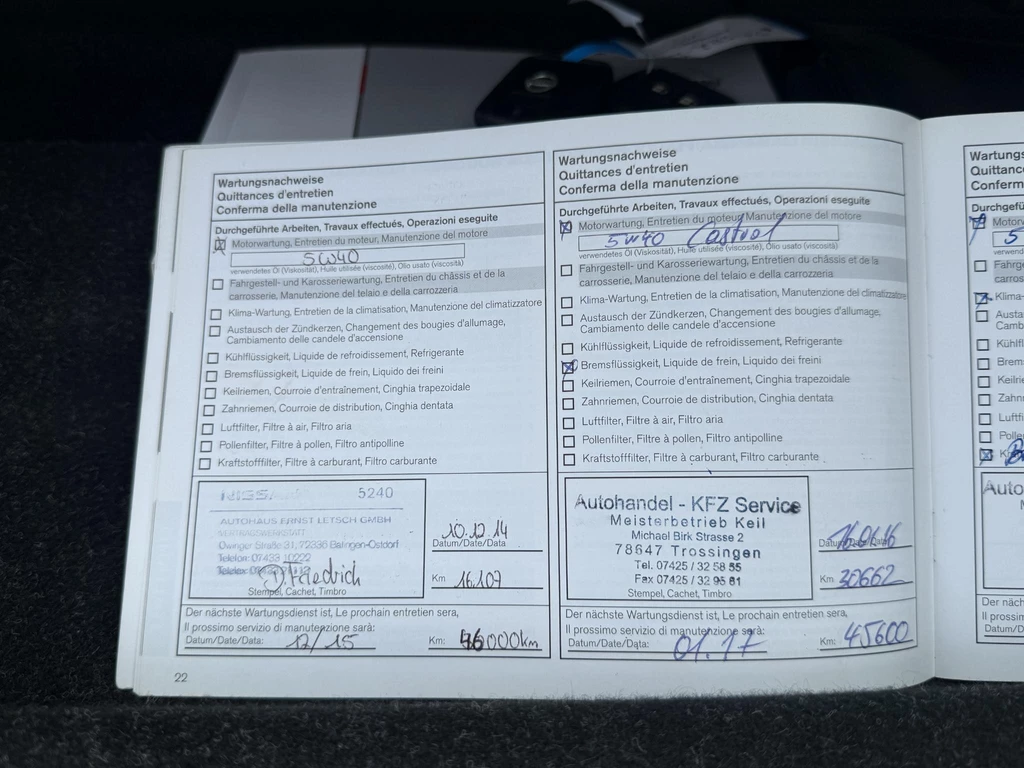 Wartungsnachweise
Quittances d'entretien
Conferma della manutenzione
Durchgeführte Arbeiten, Travaux effectués, Operazioni eseguite
Motorwartung, Entretien du moteur, Manutenzione del motore
5W40
verwendetes Öl (Viskosität), Huile utilisée (viscosité), Olio usato (viscosità)
Fahrgestell- und Karosseriewartung, Entretien du châssis et de la
carrosserie, Manutenzione del telaio e della carrozzeria
Klima-Wartung, Entretien de la climatisation, Manutenzione del climatizzatore
Austausch der Zündkerzen, Changement des bougies d'allumage,
Cambiamento delle candele d'accensione
Kühlflüssigkeit, Liquide de refroidissement, Refrigerante
Bremsflüssigkeit, Liquide de frein, Liquido dei freini
Keilriemen, Courroie d'entraînement, Cinghia trapezoidale
Zahnriemen, Courroie de distribution, Cinghia dentata
Luftfilter, Filtre à air, Filtro aria
Pollenfilter, Filtre à pollen, Filtro antipolline
Kraftstofffilter, Filtre à carburant, Filtro carburante
NISSAN 5240
AUTOHAUS ERNST LETSCH GMBH
VERTRAGSWERKSTATT
Owinger Straße 31, 72336 Balingen-Ostdorf
Telefon: 07433
Telefax:
D. Friedrich
Stempel, Cachet, Timbro
10.12.14
Datum/Date/Data
Km 16.107
Der nächste Wartungsdienst ist, Le prochain entretien sera,
Il prossimo servizio di manutezione sarà:
Datum/Date/Data: 12/15 Km: 46000km
22
Wartungsnachweise
Quittances d'entretien
Conferma della manutenzione
Durchgeführte Arbeiten, Travaux effectués, Operazioni eseguite
Motorwartung, Entretien du moteur, Manutenzione del motore
5W40 Castrol
verwendetes Öl (Viskosität), Huile utilisée (viscosité), Olio usato (viscosità)
Fahrgestell- und Karosseriewartung, Entretien du châssis et de la
carrosserie, Manutenzione del telaio e della carrozzeria
Klima-Wartung, Entretien de la climatisation, Manutenzione del climatizzatore
Austausch der Zündkerzen, Changement des bougies d'allumage,
Cambiamento delle candele d'accensione
Kühlflüssigkeit, Liquide de refroidissement, Refrigerante
Bremsflüssigkeit, Liquide de frein, Liquido dei freini
Keilriemen, Courroie d'entraînement, Cinghia trapezoidale
Zahnriemen, Courroie de distribution, Cinghia dentata
Luftfilter, Filtre à air, Filtro aria
Pollenfilter, Filtre à pollen, Filtro antipolline
Kraftstofffilter, Filtre à carburant, Filtro carburante
Autohandel - KFZ Service
Meisterbetrieb Keil
Michael Birk Strasse 2
78647 Trossingen
Tel. 07425 / 32 58 55
Fax 07425 / 32 95 81
Stempel, Cachet, Timbro
Datum/Date/Data
Km 30662
Der nächste Wartungsdienst ist, Le prochain entretien sera,
Il prossimo servizio di manutezione sarà:
Datum/Date/Data: 01.17 Km: 45600